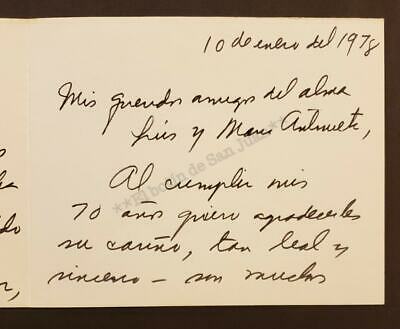 10 de enero del 1978
Mis queridos amigos del alma
Luis y Marie Antoinette,
Al cumplir mis
70 años quiero agradecerles
su cariño, tan leal y
sincero - son muchos
**El botín de San Juan**